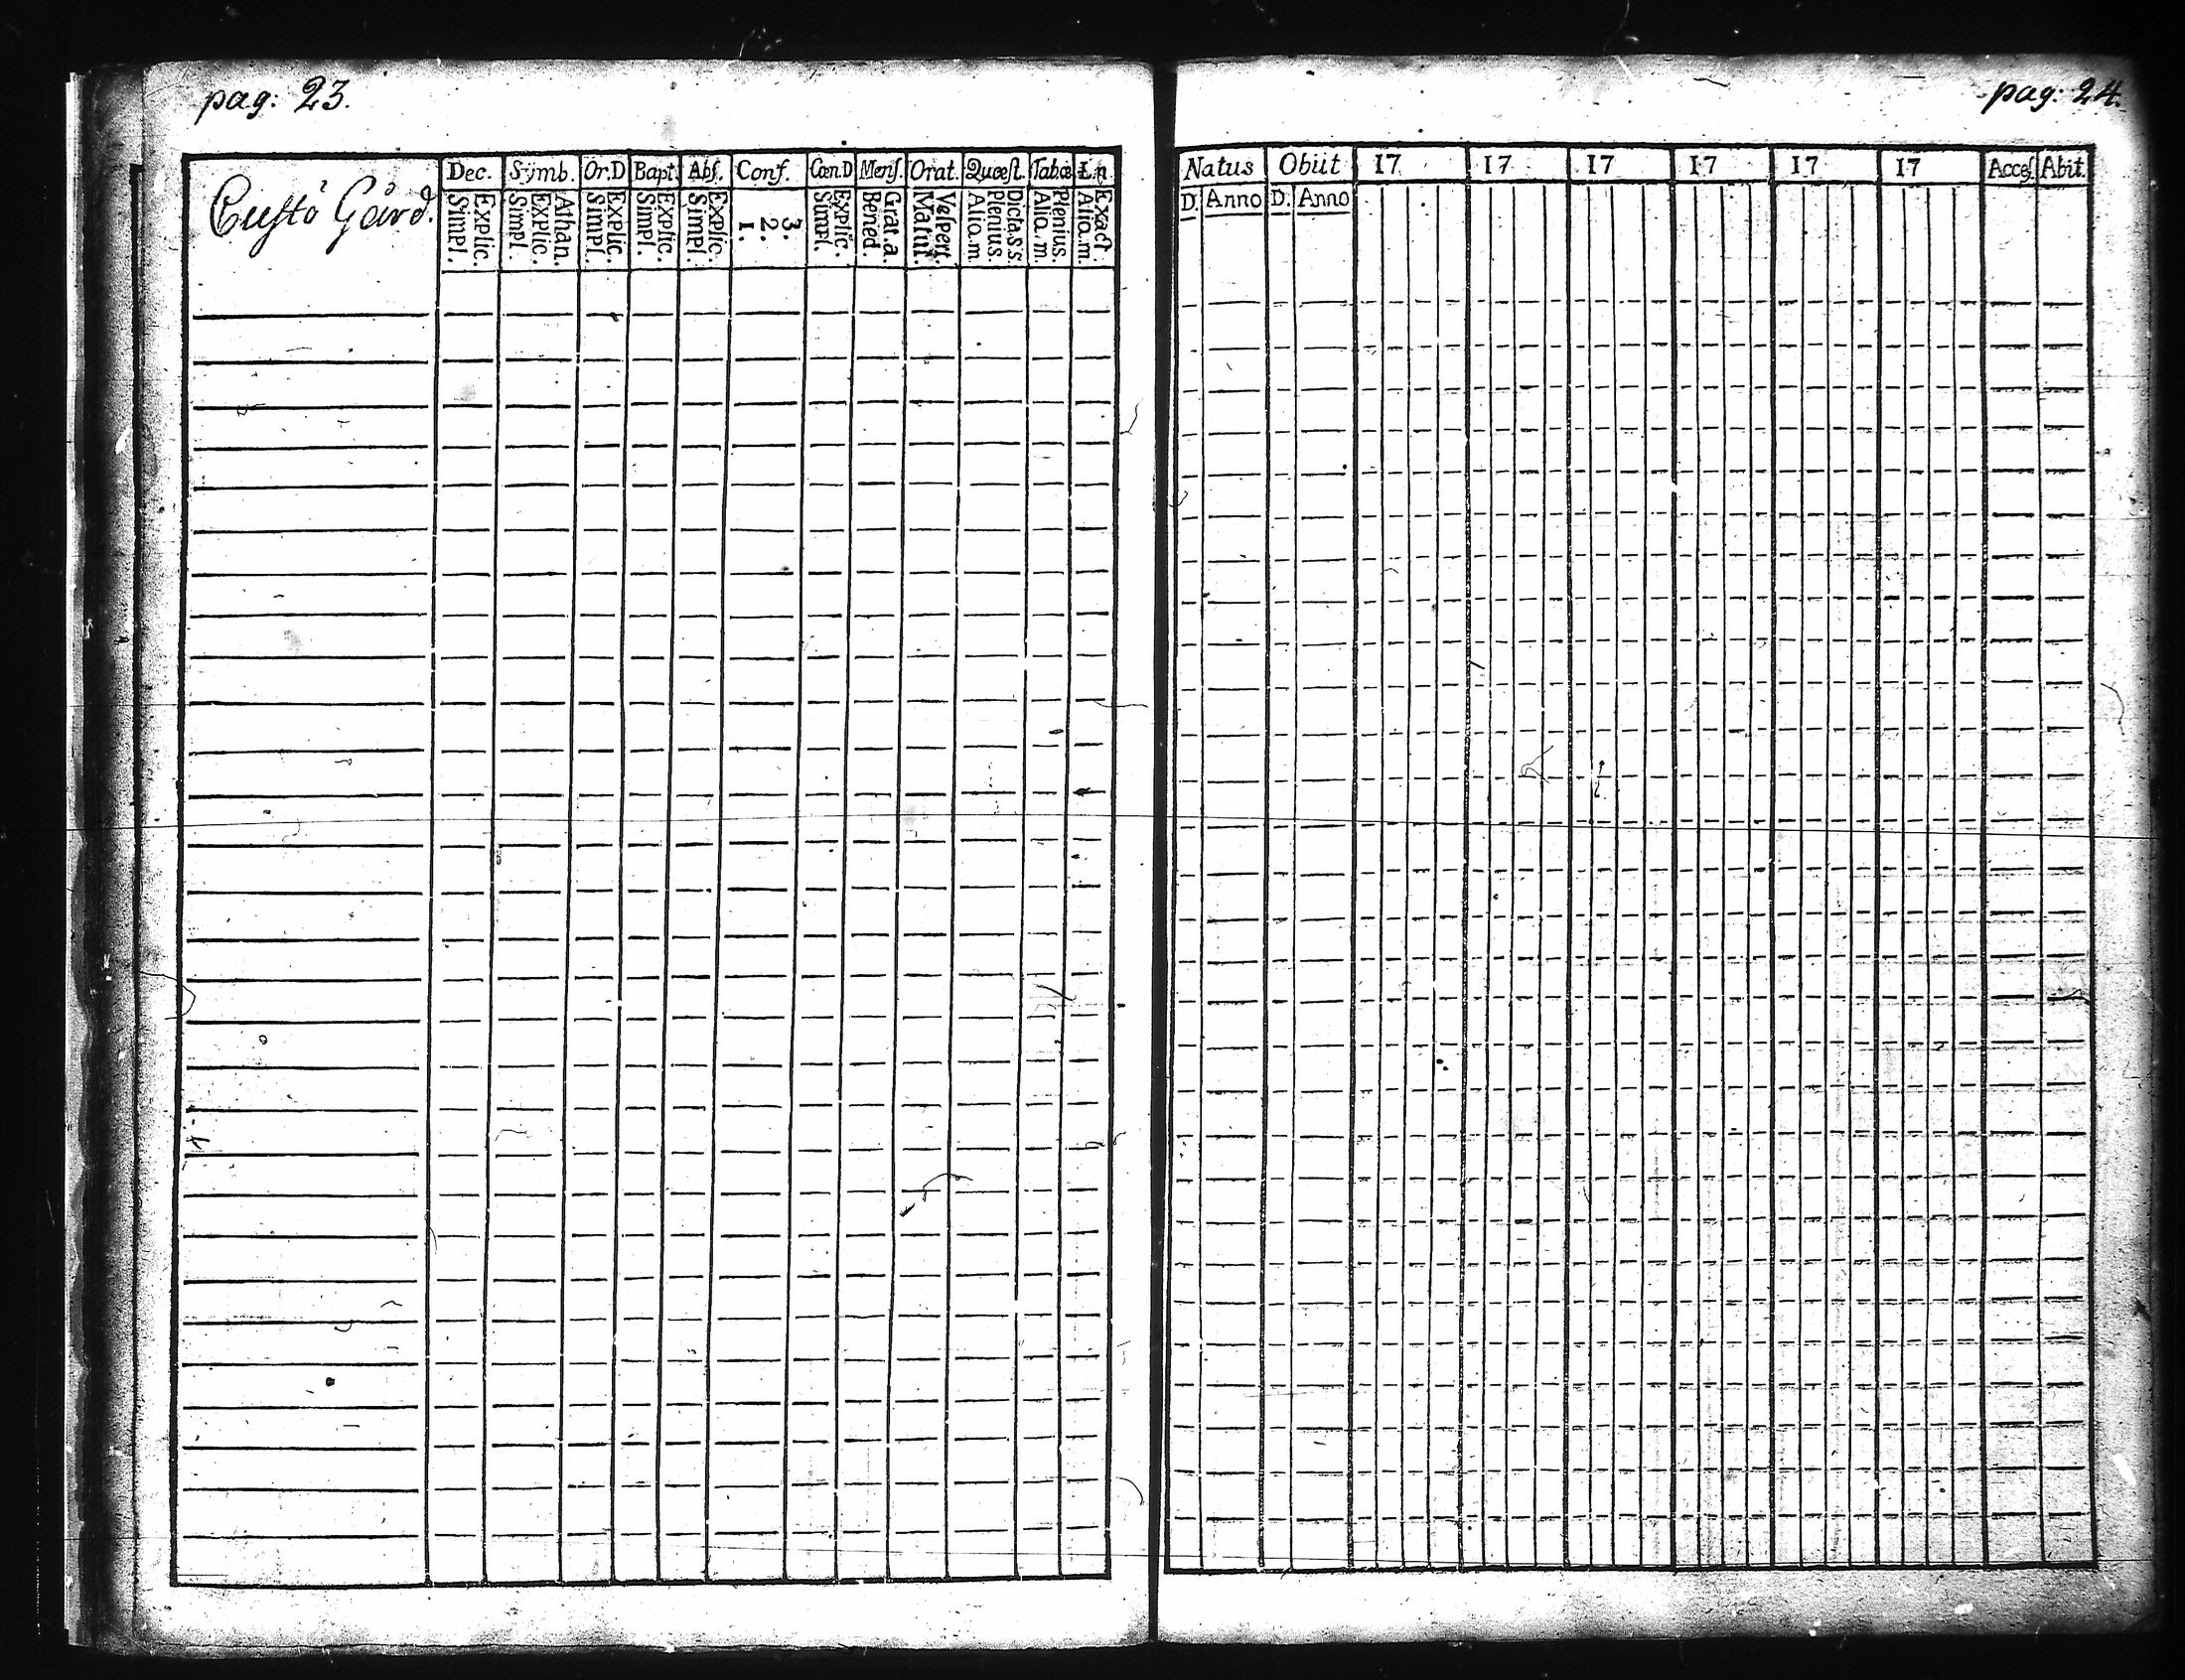 pag: 23.
Custö Gård.
Dec. Sÿmb. Or.D Bapt. Abſ. Conf. Cœn.D Menſ. Orat. Quæſt. Tabœ
Explic. Simpl.
Athan. Explic. Simpl.
Explic. Simpl.
Explic. Simpl.
Explic. Simpl.
3. 2. 1.
Explic. Simpl.
Grat.a. Bened.
Veſpert. Matut.
Dict.a.s.s. Plenius. Alio.m
Plenius. Alio.m.
Exact. Alio.m.
pag: 24.
Natus Obiit 17 17 17 17 17 17 Acceſ. Abit.
D. Anno D. Anno